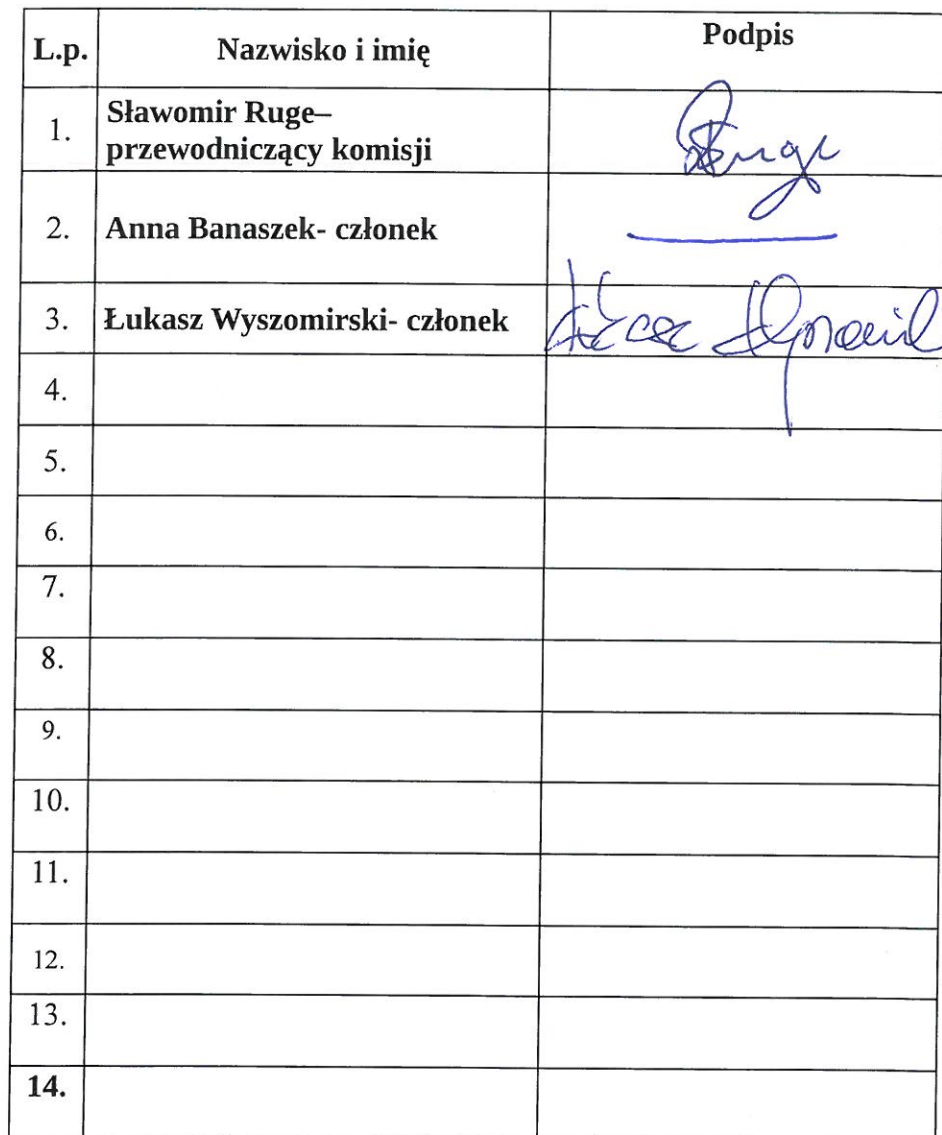 L.p. Nazwisko i imię Podpis
1. Sławomir Ruge–
przewodniczący komisji
2. Anna Banaszek- członek
3. Łukasz Wyszomirski- członek
4.
5.
6.
7.
8.
9.
10.
11.
12.
13.
14.